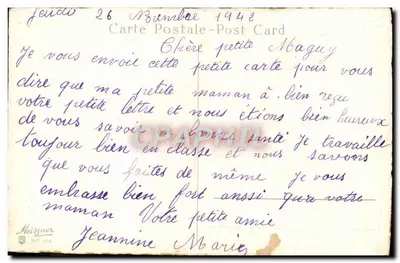 Jeudi 26 Novembre 1942
Carte Postale - Post Card
Chère petite Maguy
Je vous envoie cette petite carte pour vous
dire que ma petite maman à bien reçu
votre petite lettre et nous étions bien heureux
de vous savoir bonne santé Je travaille
toujour bien en classe et nous savons
que vous faites de même Je vous
embrasse bien fort aussi qu'a votre
maman Votre petite amie
Jeannine Marie